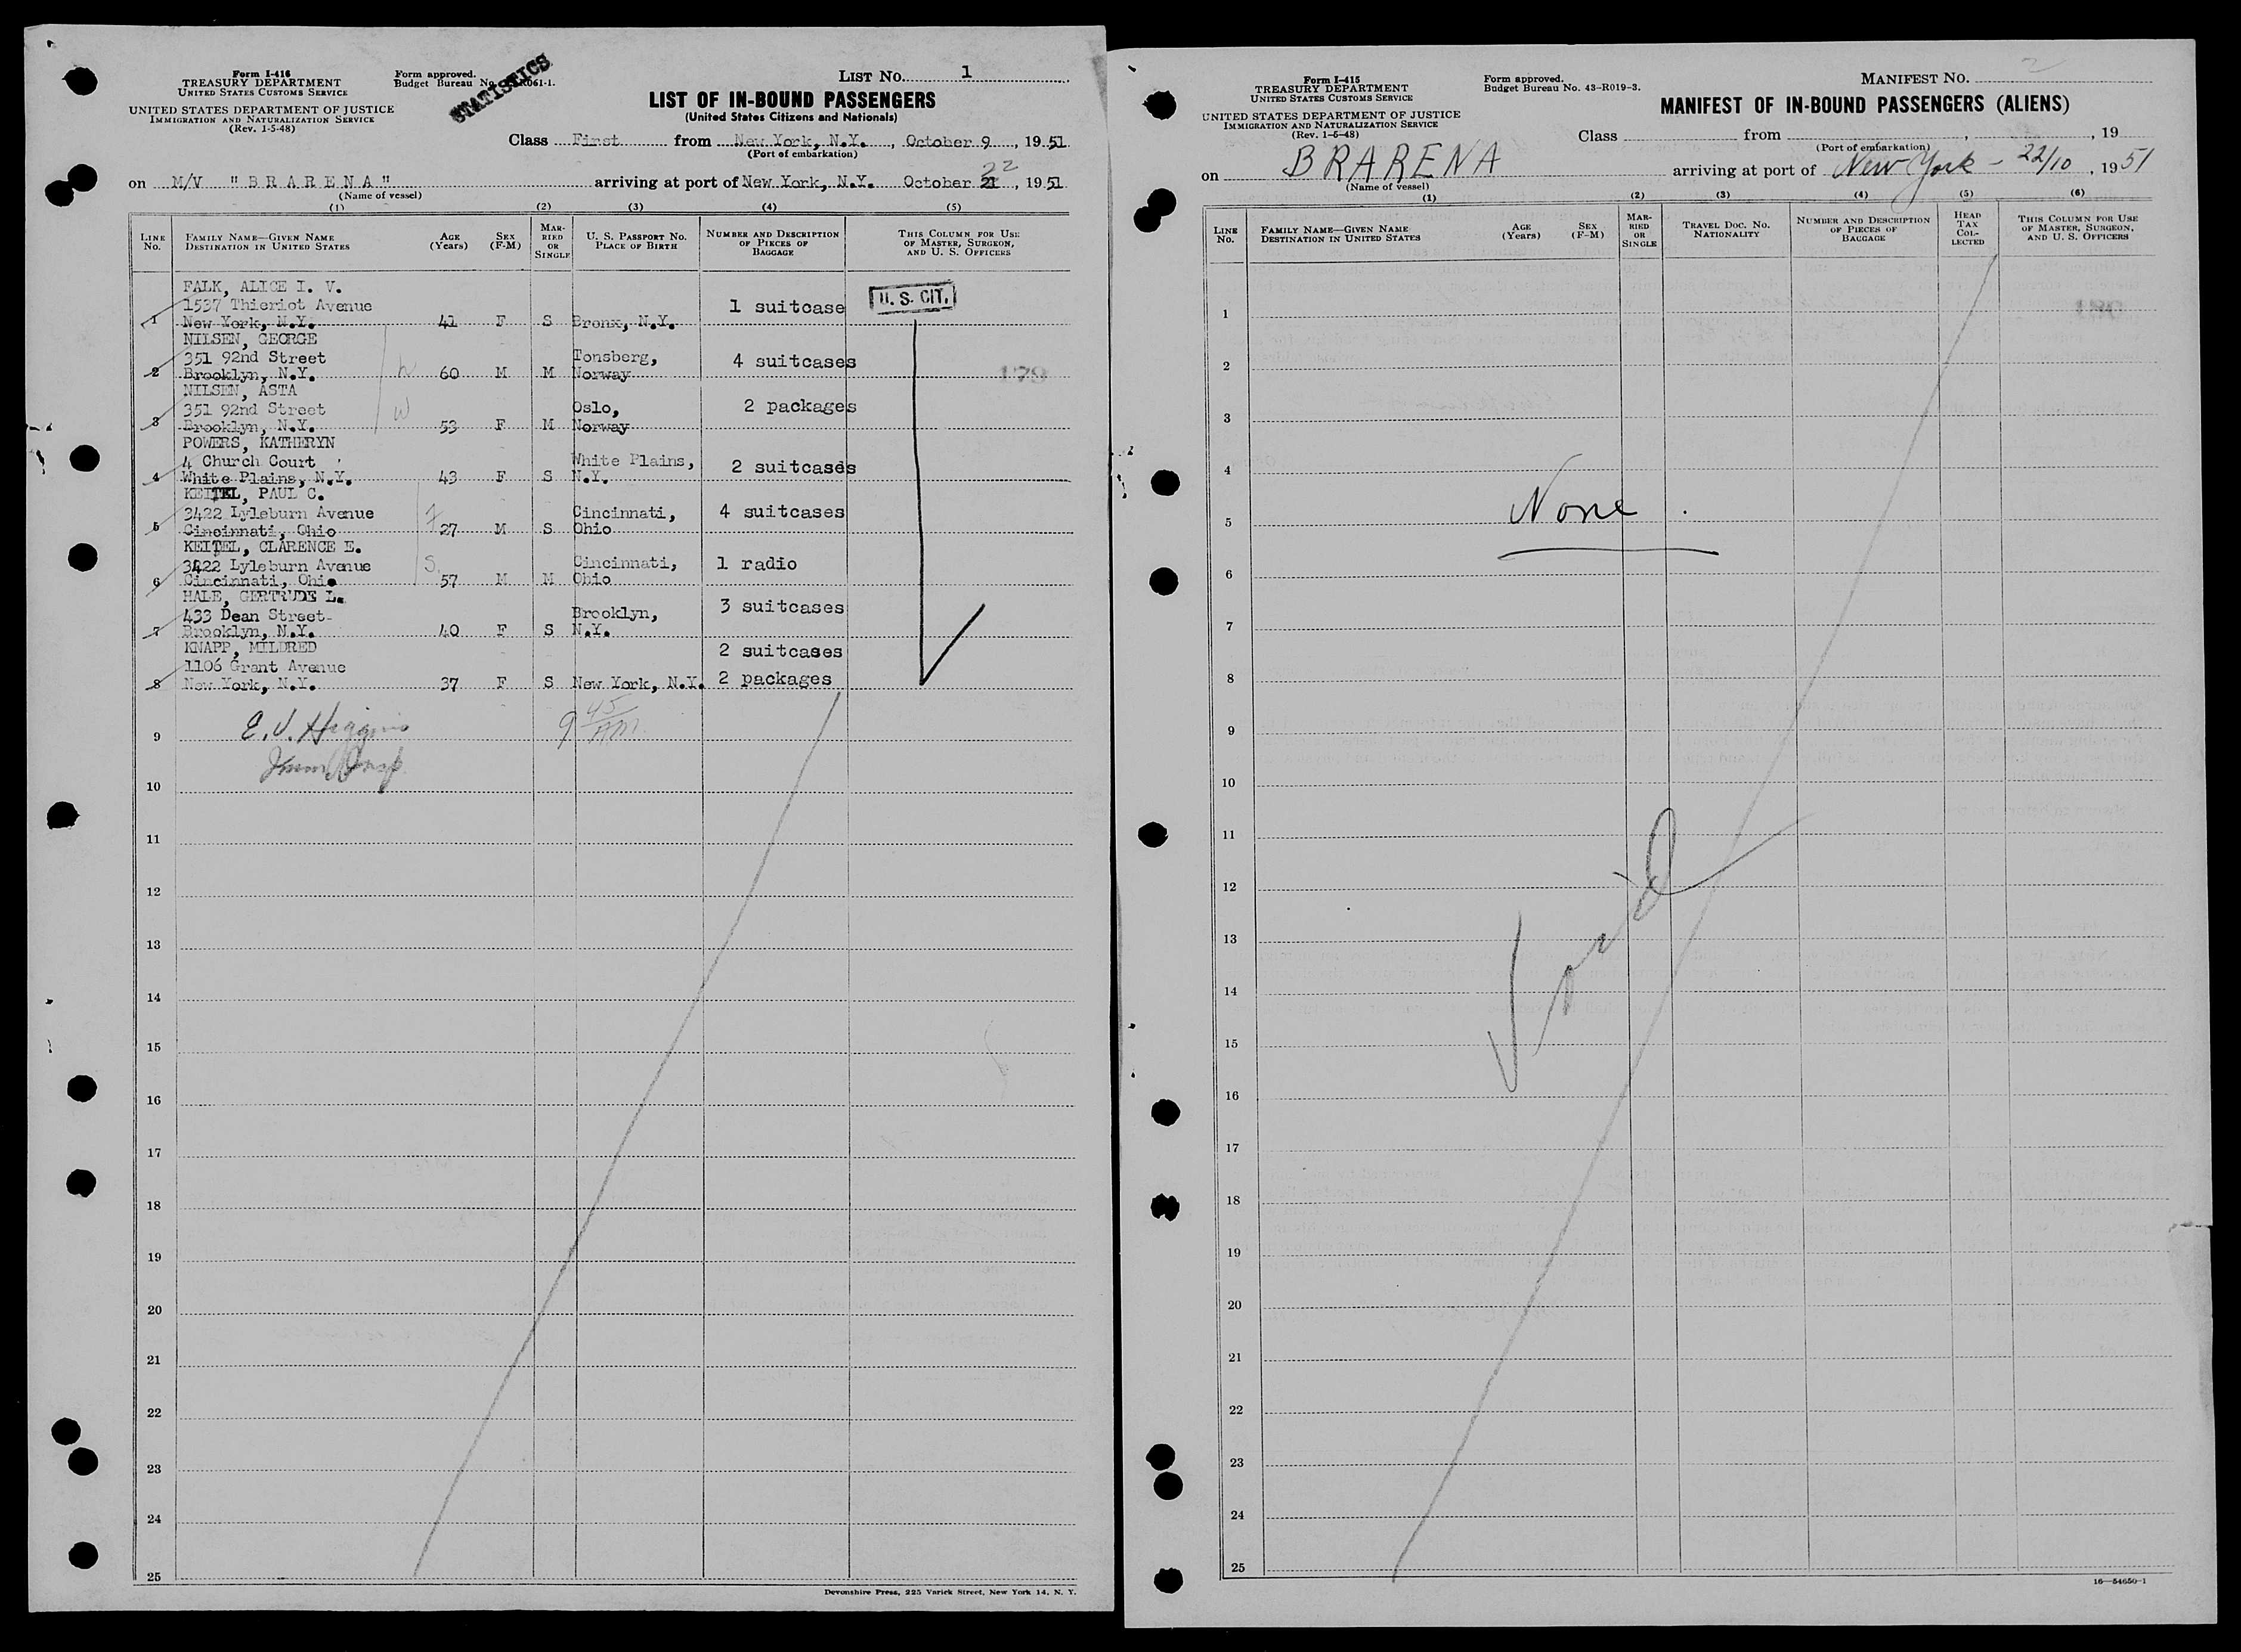 Form I-416
TREASURY DEPARTMENT
UNITED STATES CUSTOMS SERVICE
UNITED STATES DEPARTMENT OF JUSTICE
IMMIGRATION AND NATURALIZATION SERVICE
(Rev. 1-5-48)
Form approved.
Budget Bureau No. R061-1.
STATISTICS
LIST NO. 1
LIST OF IN-BOUND PASSENGERS
(United States Citizens and Nationals)
Class First from New York, N.Y., October 9, 1951
(Port of embarkation)
on M/V "BRARENA" arriving at port of New York, N.Y. October 21 22, 1951
(Name of vessel)
(1) (2) (3) (4) (5)
LINE NO. FAMILY NAME—GIVEN NAME DESTINATION IN UNITED STATES AGE (Years) SEX (F-M) MARRIED OR SINGLE U. S. PASSPORT NO. PLACE OF BIRTH NUMBER AND DESCRIPTION OF PIECES OF BAGGAGE THIS COLUMN FOR USE OF MASTER, SURGEON, AND U. S. OFFICERS
FALK, ALICE I. V.
1537 Thieriot Avenue 1 suitcase U. S. CIT.
1 New York, N.Y. 41 F S Bronx, N.Y.
NILSEN, GEORGE
351 92nd Street Tonsberg, 4 suitcases
2 Brooklyn, N.Y. h 60 M M Norway 179
NILSEN, ASTA
351 92nd Street w Oslo, 2 packages
3 Brooklyn, N.Y. 53 F M Norway
POWERS, KATHERYN
4 Church Court White Plains, 2 suitcases
4 White Plains, N.Y. 43 F S N.Y.
KEITEL, PAUL C.
3422 Lyleburn Avenue Cincinnati, 4 suitcases
5 Cincinnati, Ohio 27 M S Ohio
KEITEL, CLARENCE E.
3422 Lyleburn Avenue S. Cincinnati, 1 radio
6 Cincinnati, Ohio 57 M M Ohio
HALE, GERTRUDE L.
433 Dean Street Brooklyn, 3 suitcases
7 Brooklyn, N.Y. 40 F S N.Y.
KNAPP, MILDRED 2 suitcases
1106 Grant Avenue
8 New York, N.Y. 37 F S New York, N.Y. 2 packages
E. J. Higgins 9 45 AM
9
Imm Insp
10
11
12
13
14
15
16
17
18
19
20
21
22
23
24
25
Devonshire Press, 225 Varick Street, New York 14, N. Y.
Form I-415
TREASURY DEPARTMENT
UNITED STATES CUSTOMS SERVICE
UNITED STATES DEPARTMENT OF JUSTICE
IMMIGRATION AND NATURALIZATION SERVICE
(Rev. 1-5-48)
Form approved.
Budget Bureau No. 43-R019-3.
MANIFEST NO. 2
MANIFEST OF IN-BOUND PASSENGERS (ALIENS)
Class from , , 19
(Port of embarkation)
on BRARENA arriving at port of New York - 22/10, 1951
(Name of vessel)
(1) (2) (3) (4) (5) (6)
LINE NO. FAMILY NAME—GIVEN NAME DESTINATION IN UNITED STATES AGE (Years) SEX (F-M) MARRIED OR SINGLE TRAVEL DOC. NO. NATIONALITY NUMBER AND DESCRIPTION OF PIECES OF BAGGAGE HEAD TAX COLLECTED THIS COLUMN FOR USE OF MASTER, SURGEON, AND U. S. OFFICERS
1 180
2
3
4
5 None.
6
7
8
9
10
11
12
13 Void
14
15
16
17
18
19
20
21
22
23
24
25
16—54650-1